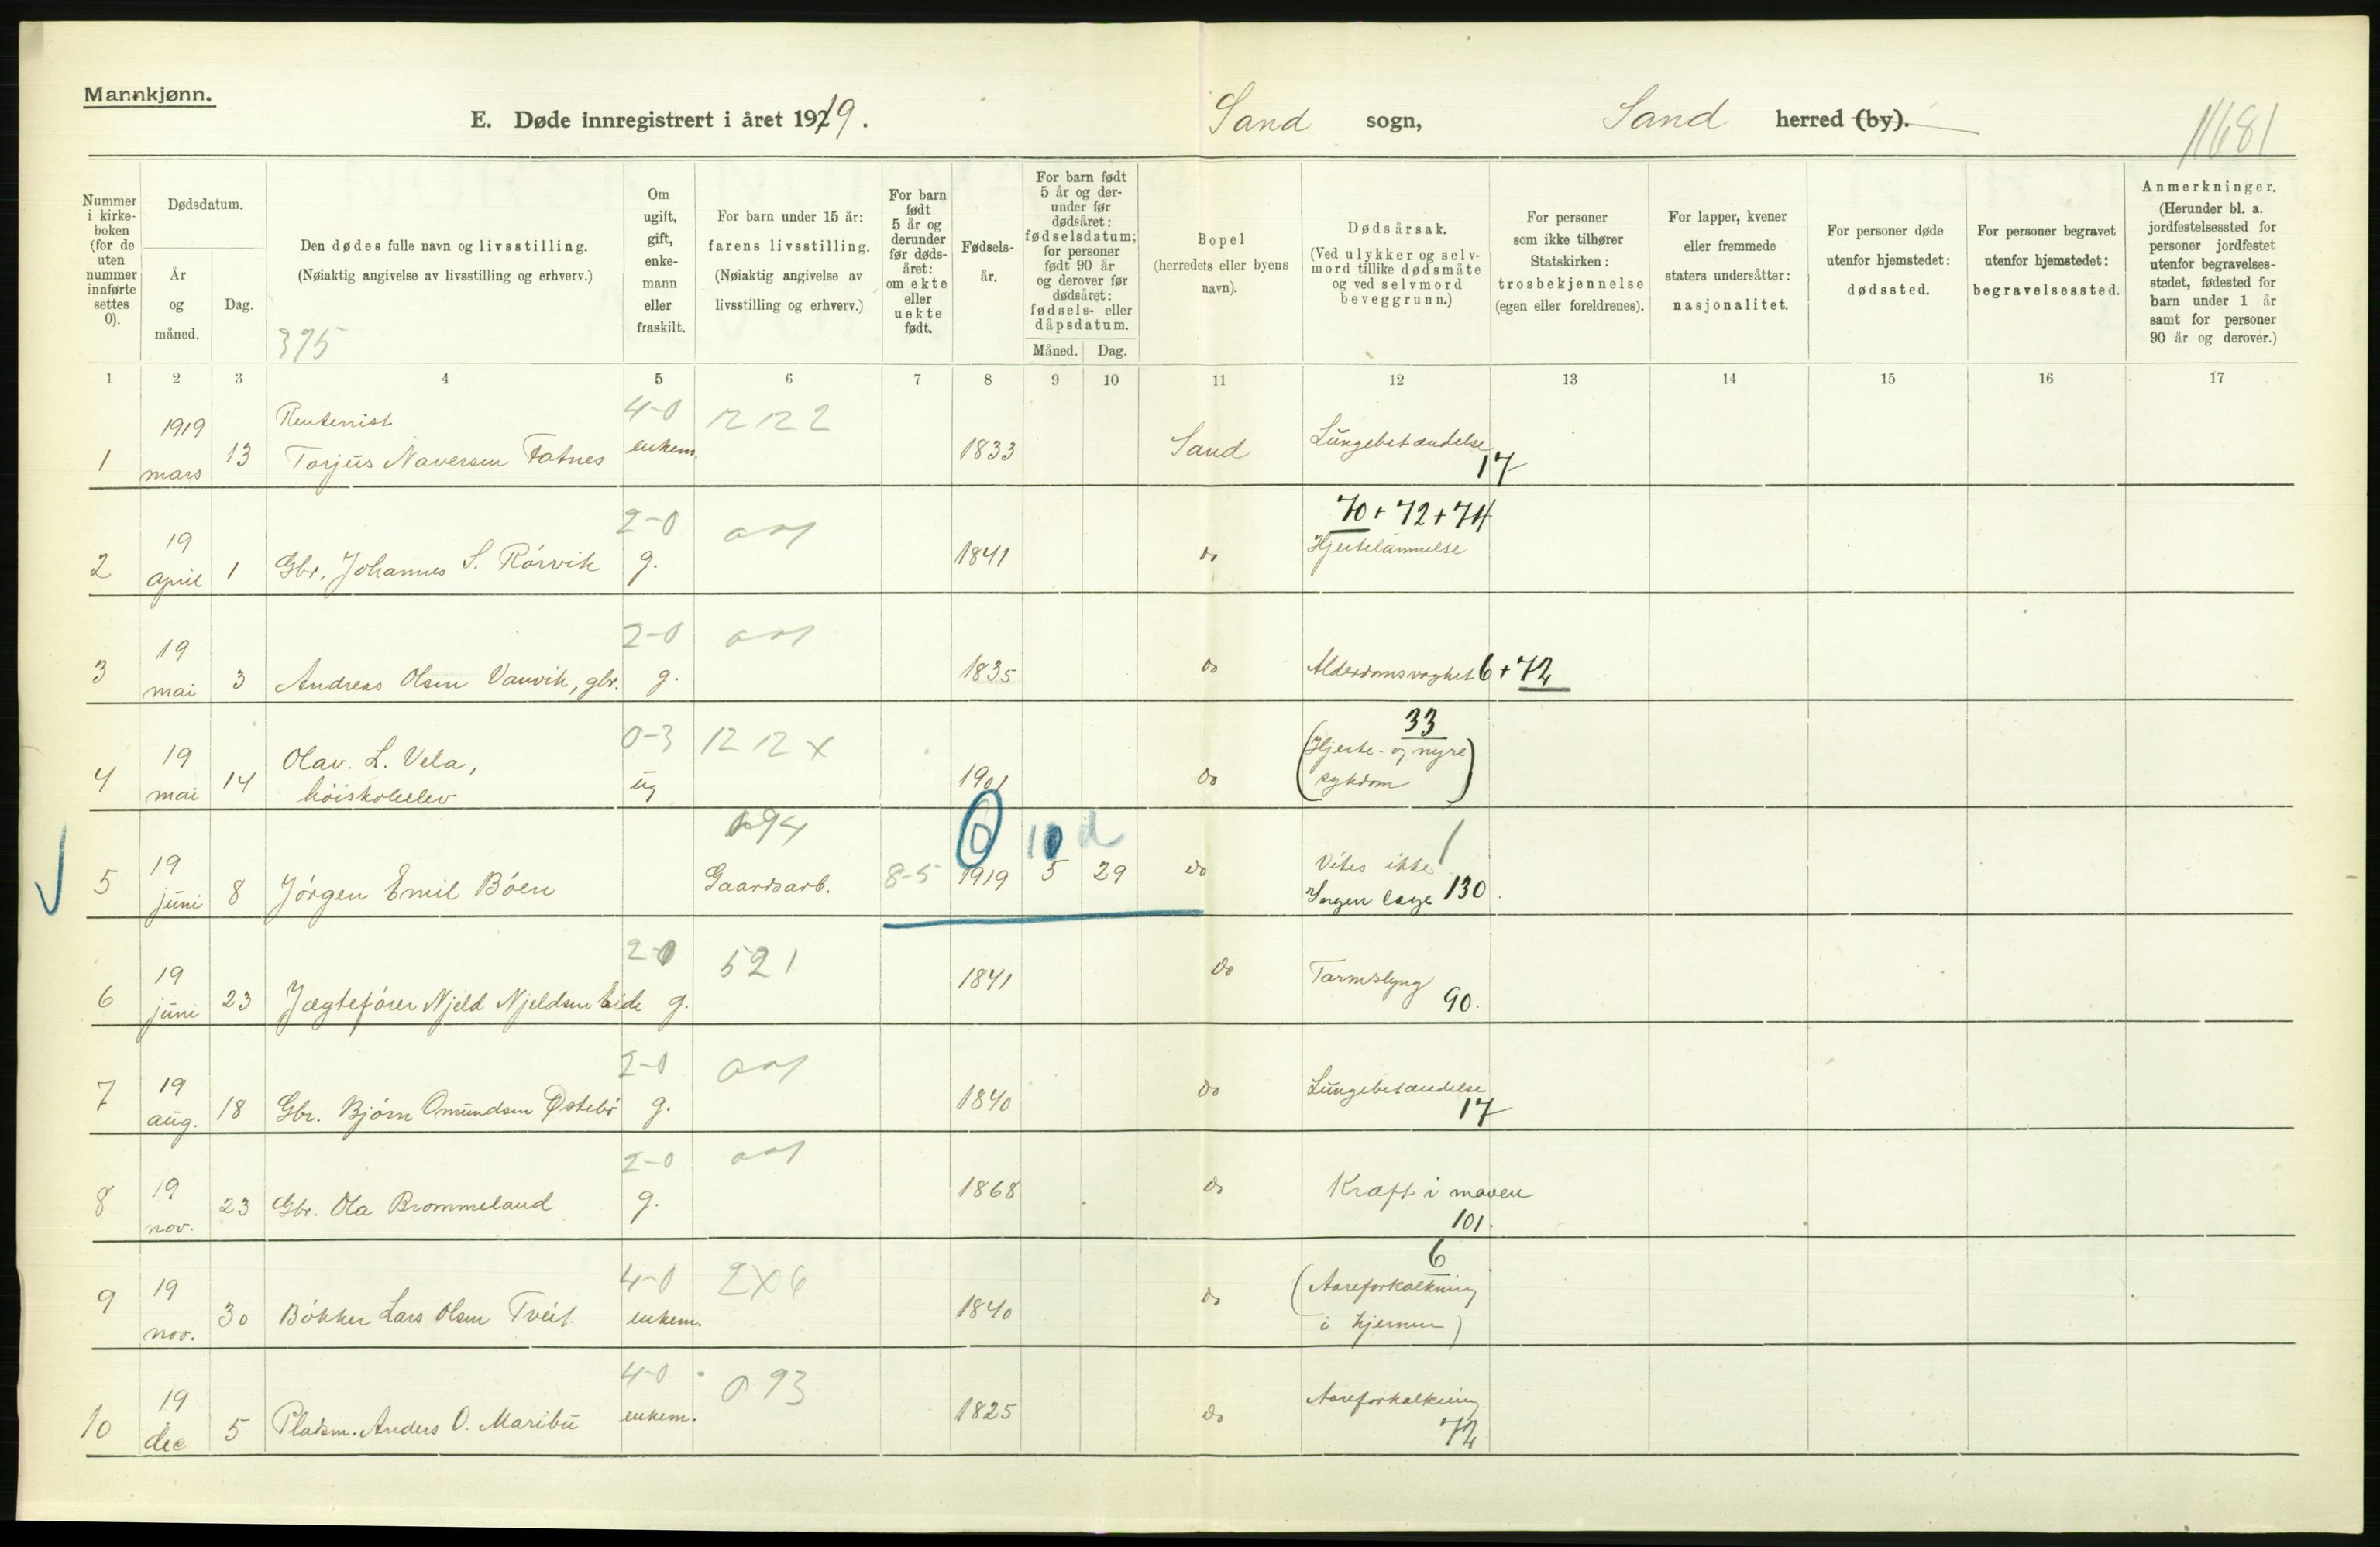 Mannkjønn.
E. Døde innregistrert i året 1919.
Sand sogn, Sand herred (by).
11681
Nummer i kirkeboken (for de uten nummer innførte settes 0).
Dødsdatum.
År og måned.
Dag.
Den dødes fulle navn og livsstilling.
(Nøiaktig angivelse av livsstilling og erhverv.)
375
Om ugift, gift, enkemann eller fraskilt.
For barn under 15 år: farens livsstilling.
(Nøiaktig angivelse av livsstilling og erhverv.)
For barn født 5 år og derunder før dødsåret: om ekte eller uekte født.
Fødselsår.
For barn født 5 år og derunder før dødsåret: fødselsdatum; for personer født 90 år og derover før dødsåret: fødsels- eller dåpsdatum.
Måned. Dag.
Bopel
(herredets eller byens navn).
Dødsårsak.
(Ved ulykker og selvmord tillike dødsmåte og ved selvmord beveggrunn.)
For personer som ikke tilhører Statskirken: trosbekjennelse (egen eller foreldrenes).
For lapper, kvener eller fremmede staters undersåtter: nasjonalitet.
For personer døde utenfor hjemstedet: dødssted.
For personer begravet utenfor hjemstedet: begravelsessted.
Anmerkninger.
(Herunder bl. a. jordfestelsessted for personer jordfestet utenfor begravelsesstedet, fødested for barn under 1 år samt for personer 90 år og derover.)
1 2 3 4 5 6 7 8 9 10 11 12 13 14 15 16 17
1 1919 mars 13 Rentenist Torjus Naversen Fatnes 4-0 enkem. 12 12 2 1833 Sand Lungebetændelse 17
2 19 april 1 Gbr. Johannes S. Rórvik 2-0 g. 1841 do 70 + 72 + 74 Hjertelammelse
3 19 mai 3 Andreas Olsen Vanvik, gbr. 2-0 g. 1835 do Alderdomsvaghet 6 + 72
4 19 mai 14 Olav. L. Vela, hóiskoleelev 0-3 ug 12 12 x 1901 do 33 (Hjerte- og nyre sykdom)
5 19 juni 8 Jórgen Emil Bóen 094 Gaardsarb. 8-5 0 1919 10 d 5 29 do Vites ikke / Ingen læge 130.
6 19 juni 23 Jægtefórer Njeld Njeldsen Eide 2-0 g. 521 1841 do Tarmslyng 90.
7 19 aug. 18 Gbr. Bjórn Omundsen Østebó 2-0 g. 1840 do Lungebetændelse 17
8 19 nov. 23 Gbr. Ola Brommeland 2-0 g. 1868 do Kræft i maven 101.
9 19 nov. 30 Bókker Lars Olsen Tveit. 4-0 enkem. 2X6 1840 do 6 (Aareforkalkning i hjernen)
10 19 dec 5 Pladsm. Anders O. Maribu 4-0 enkem. 093 1825 do Aareforkalkning 72